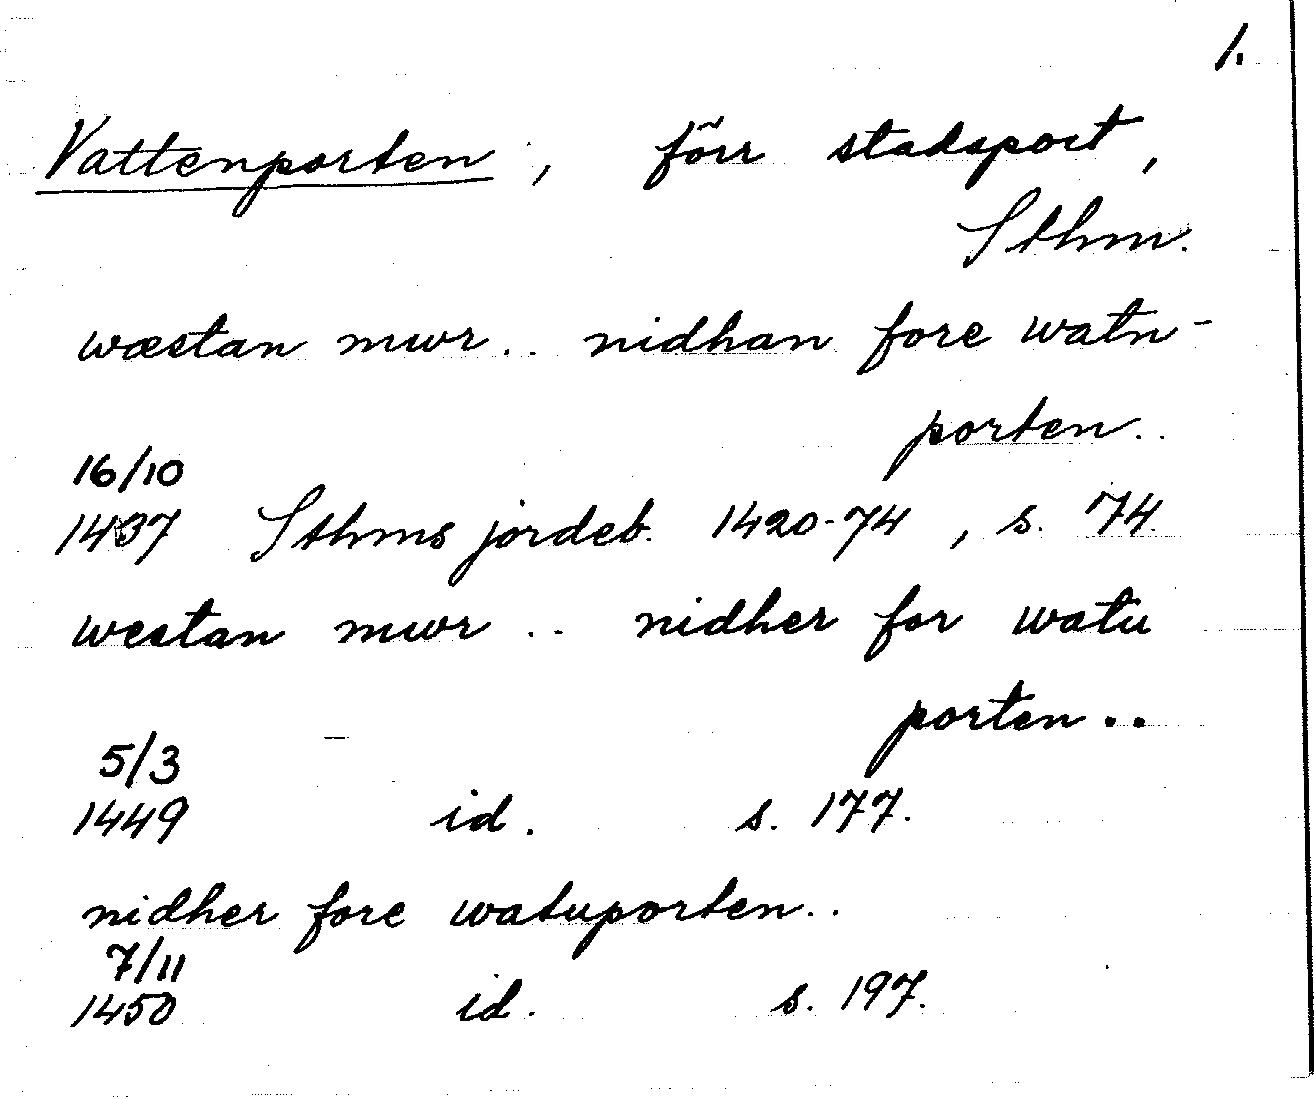 1.
Vattenporten, förr stadsport,
Sthm.
wæstan mwr.. nidhan fore watn-
porten..
16/10
1437 Sthms jordeb. 1420-74, s. 74
westan mwr .. nidher for watu
porten..
5/3
1449 id. s. 177.
nidher fore watuporten..
7/11
1450 id. s. 197.